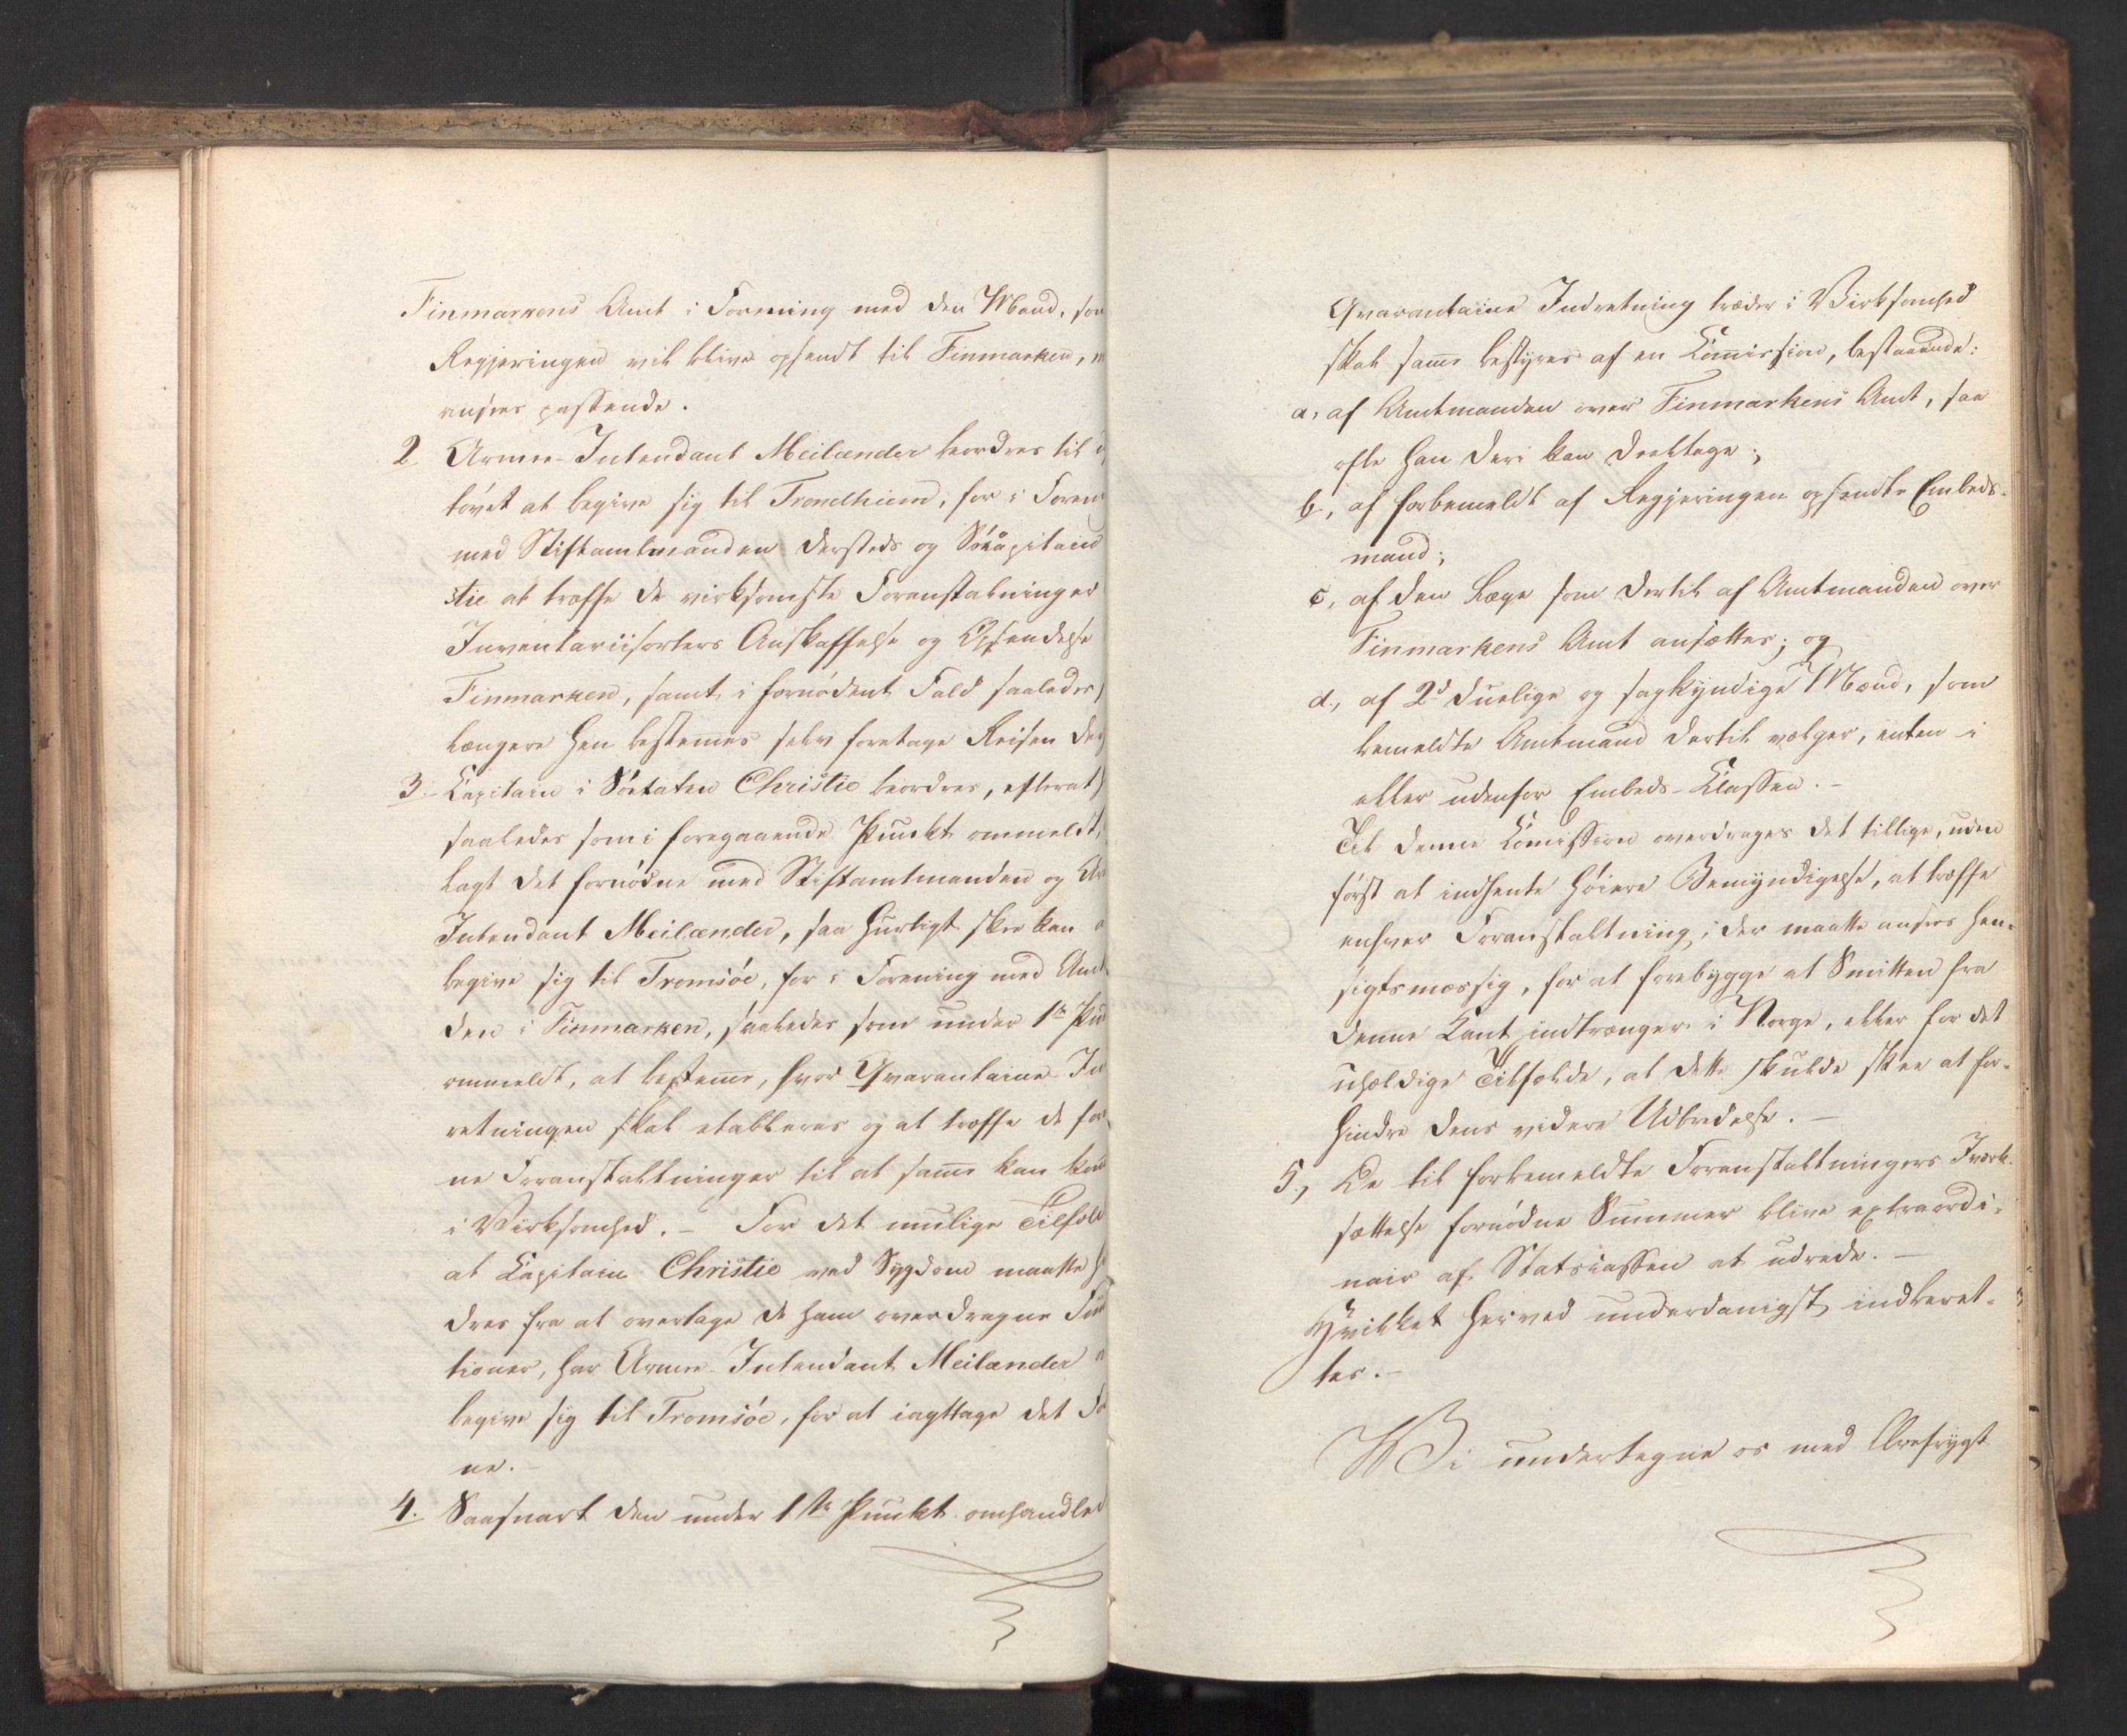 Finmarkens Amt i Forening med den Mand, som
Regjeringen vil blive opsendt til Finmarken,
ansees passende.
2 Armee-Intendant Meilænder beordres til
tøvet at begive sig til Trondhiem, for i Foren
med Stiftamtmanden dersteds og Søkapitain
stie at træffe de virksomste Foranstaltninger
Inventariisorters Anskaffelse og Opsendelse
Finmarken, samt i fornødent Fald saaledes
længere hen bestemes selv foretage Reisen der
3. Capitain i Søetaten Christie beordres, efterat
saaledes som i foregaaende Punkt ommeldt,
lagt det fornødne med Stiftamtmanden og Ar
Intendant Meilænder, saa hurtigt skee kan
begive sig til Tromsøe, for i Forening med Amt
den i Finmarken, saaledes som under 1ste Pun
ommeldt, at besteme, hvor Qvarantaine-In
retningen skal etableres og at træffe de for
ne Foranstaltninger til at same kan kom
i Virksomhed. – For det mulige Tilfæld
at Capitain Christie ved Sygdom maatte hi
dres fra at overtage de ham overdragne Fun
tioner, har Armee-Intendant Meilænder
begive sig til Tromsøe, for at iagttage det For
ne. –
4. Saasnart den under 1ste Punkt omhandled
Qvarantaine Indretning træder i Virksomhed
skal same bestyres af en Comission, bestaaende:
a, af Amtmanden over Finmarkens Amt, saa
ofte han deri kan deeltage;
b, af forbemeldt af Regjeringen opsendte Embeds-
mand;
c, af den Læge som dertil af Amtmanden over
Finmarkens Amt ansættes; og
d., af 2de duelige og sagkyndige Mænd, som
bemeldte Amtmand dertil vælger, enten i
eller udenfor Embeds-Classen. –
Til denne Comission overdrages det tillige, uden
først at indhente høiere Bemyndigelse, at træffe
enhver Foranstaltning, der maatte ansees hen-
sigtsmæssig, for at forebygge at Smitten fra
denne Kant indtrænger i Norge, eller for det
uheldige Tilfælde, at dette skulde skee at for-
hindre dens videre Udbredelse. –
5., De til forbemeldte Foranstaltningers Iværk-
sættelse fornødne Summer blive extraordi-
nair af Statscassen at udrede. –
Hvilket herved underdanigst indberet-
tes. –
Vi undertegne os med Ærefrygt